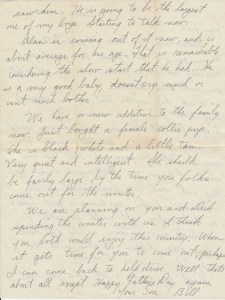 saw him. He is going to be the largest
one of my boys. Starting to talk now.
Alan is coming out of it now, and is
about average for his age. That is remarkable
considering the slow start that he had. He
is a very good baby, doesnt cry much or
isnt much bother.
We have a new addition to the family
now. Just bought a female collie pup.
She is black, white and a little tan.
Very quiet and intelligent. She should
be fairly large by the time you folks
come out for the winter.
We are planning on you and
spending the winter with us. I think
you both would enjoy this country. When
it gets time for you to come out, perhaps
I can come back to help drive. Well thats
about all except Happy Fathers Day again.
Your Son Bill